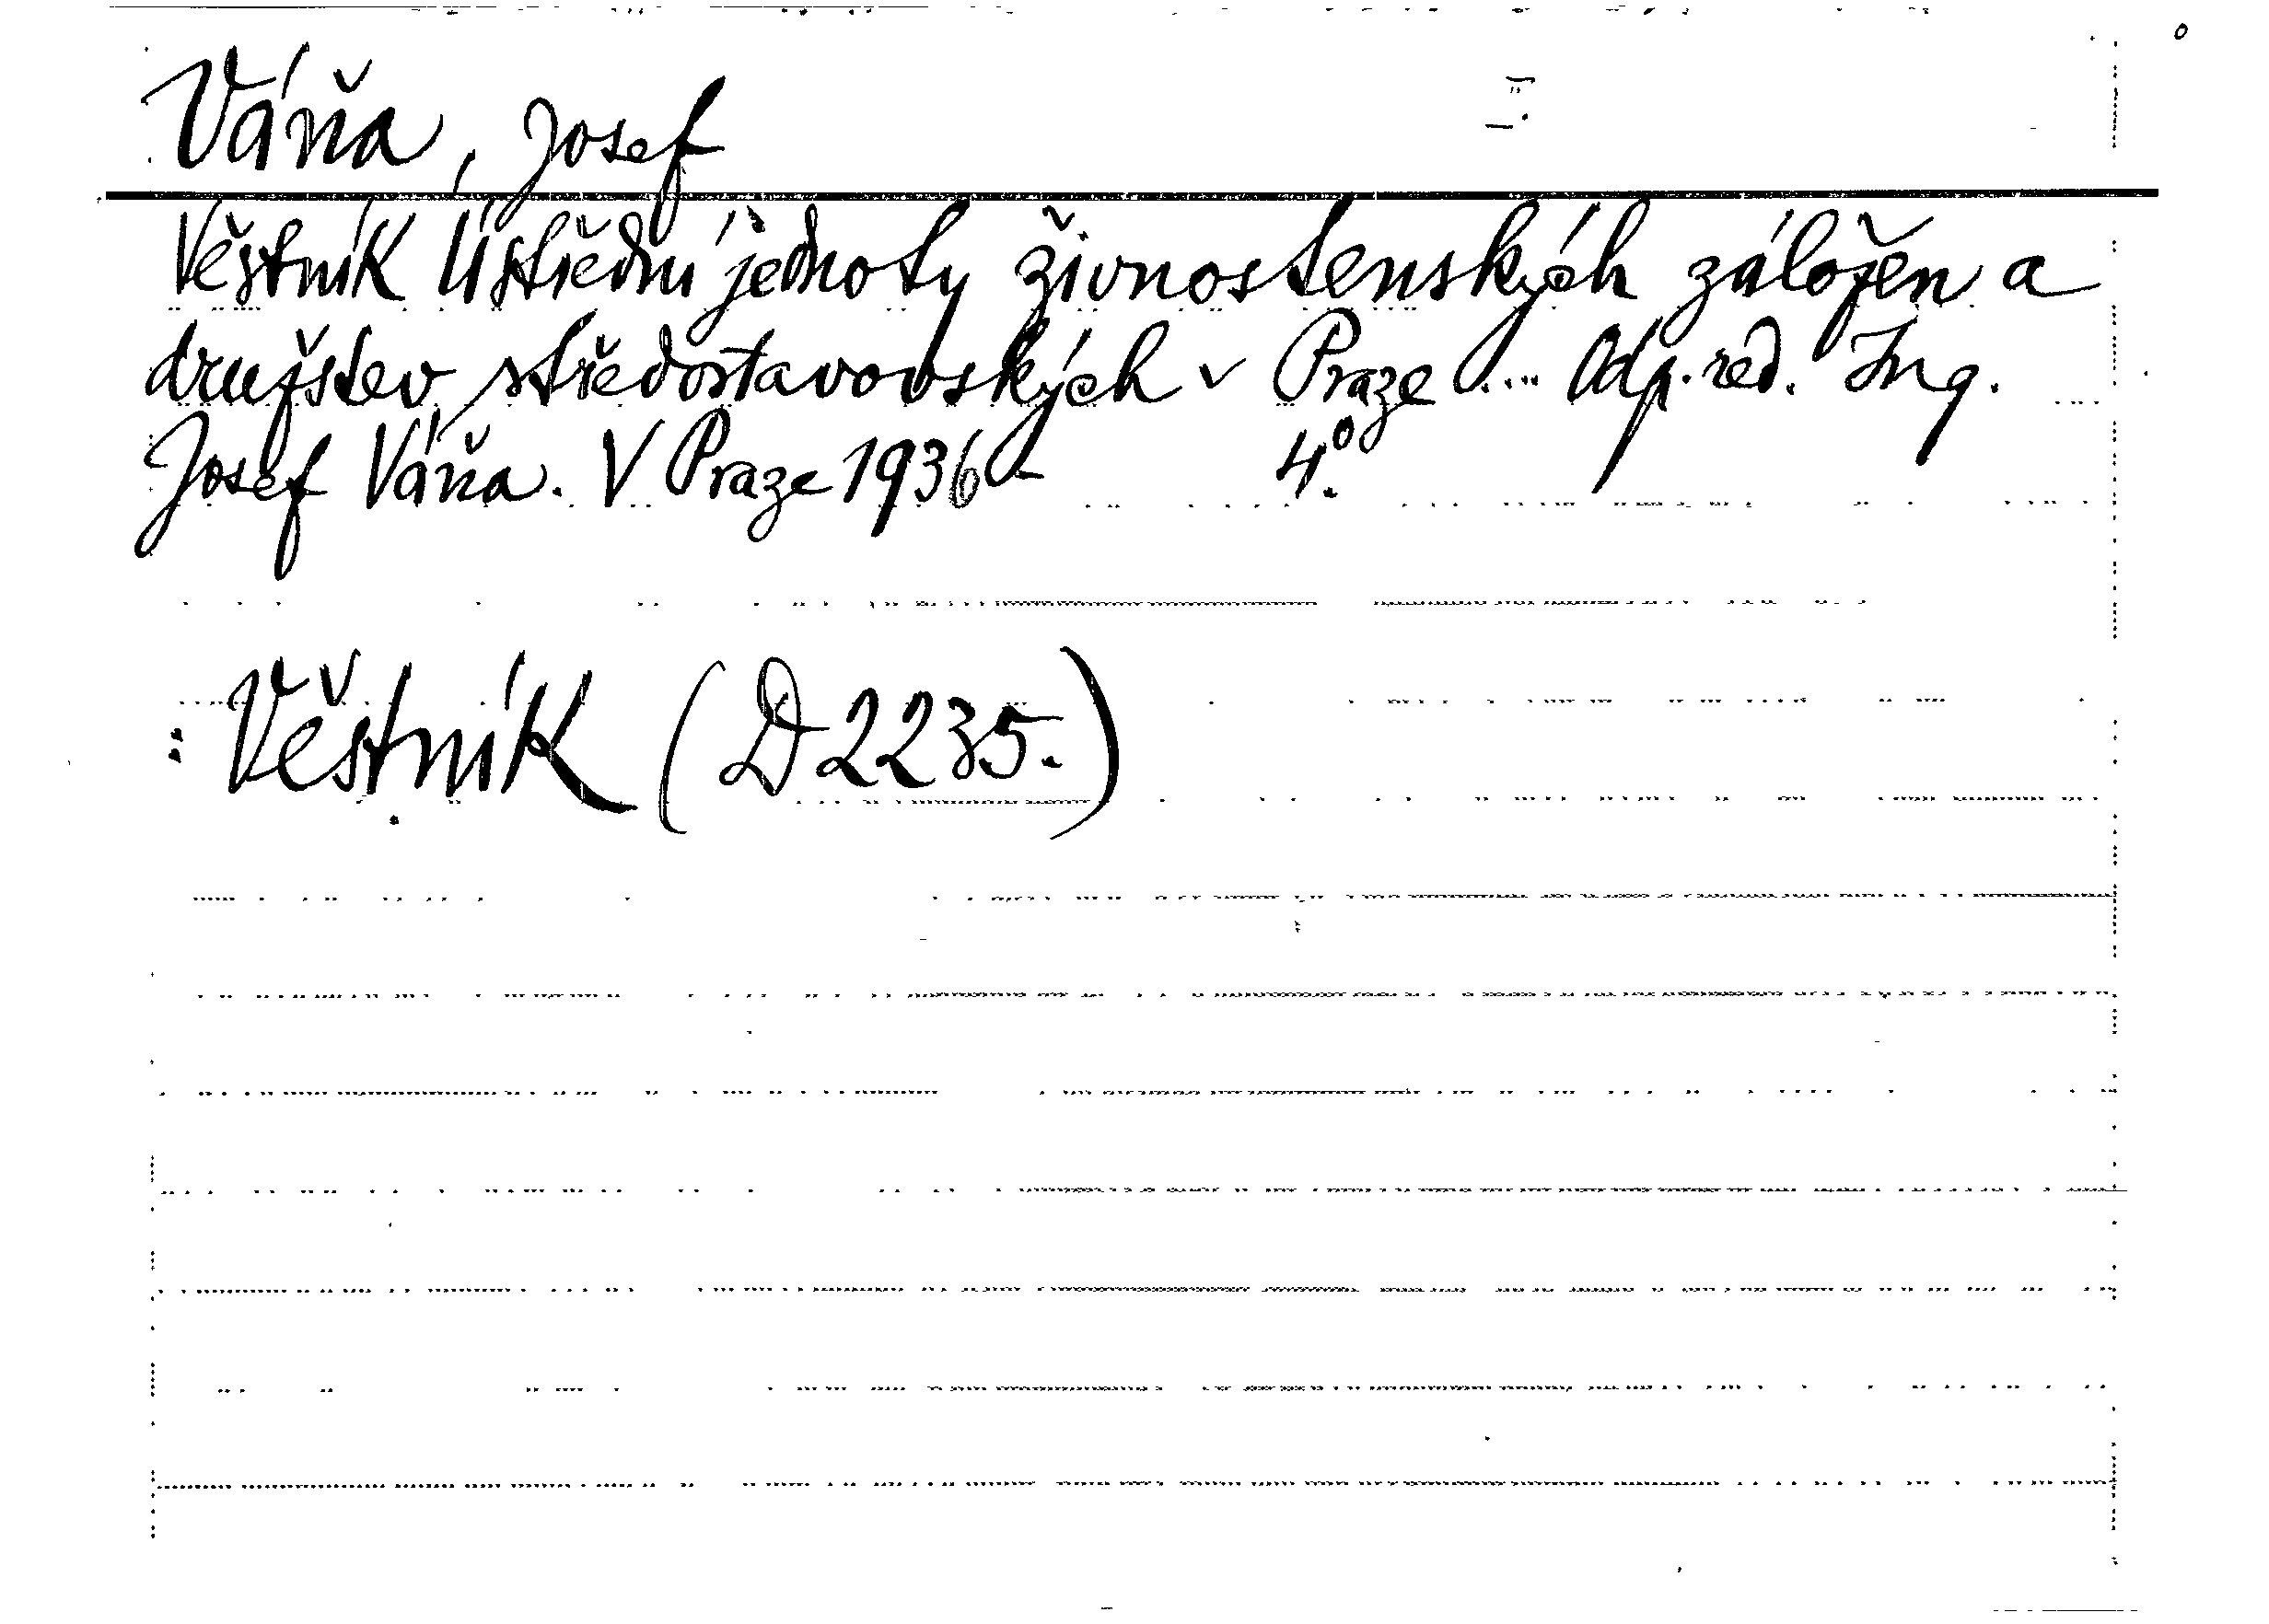 Váňa, Josef
Věstník Ústřední jednoty živnostenských záložen a
družstev středostavovských v Praze .... Odp. red. Ing.
Josef Váňa. V Praze 1936- 4°.
: Věstník (D 2235.)